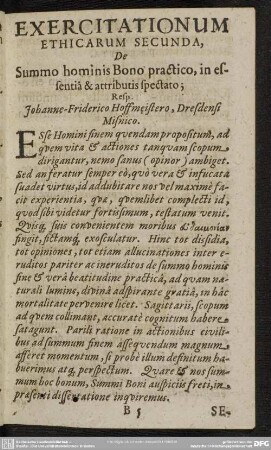 EXERCITATIONUM
ETHICARUM SECUNDA,
De
Summo hominis Bono practico, in es-
sentiâ & attributis spectato;
Resp.
Johanne-Friderico Hoffmeistero, Dresdensi
Misnico.
ESse Homini finem quendam propositum, ad
qvem vita & actiones tanqvam scopum
dirigantur, nemo sanus (opinor) ambiget.
Sed an feratur semper eò, qvò vera & infucata
suadet virtus, id addubitare nos vel maximè fa-
cit experientia, qvæ, qvemlibet complecti id,
qvod sibi videtur fortissimum, testatum venit.
Qvisq; suis convenientem moribus
fingit, fictamq; exosculatur. Hinc tot dissidia,
tot opiniones, tot etiam allucinationes inter e-
ruditos pariter ac ineruditos de summo hominis
fine & verâ beatitudine practicâ, ad qvam na-
turali lumine, divinâ adspirante gratiâ, in hâc
mortalitate pervenire licet. Sagittarii, scopum
ad qvem collimant, accuratè cognitum habere
satagunt. Parili ratione in actionibus civili-
bus ad summum finem assequendum magnum
afferet momentum, si probè illum definitum ha-
buerimus atq; perspectum. Qvare & nos sum-
mum hoc bonum, Summi Boni auspiciis freti, in
præsenti dissertatione inqviremus.
B 5 SE-